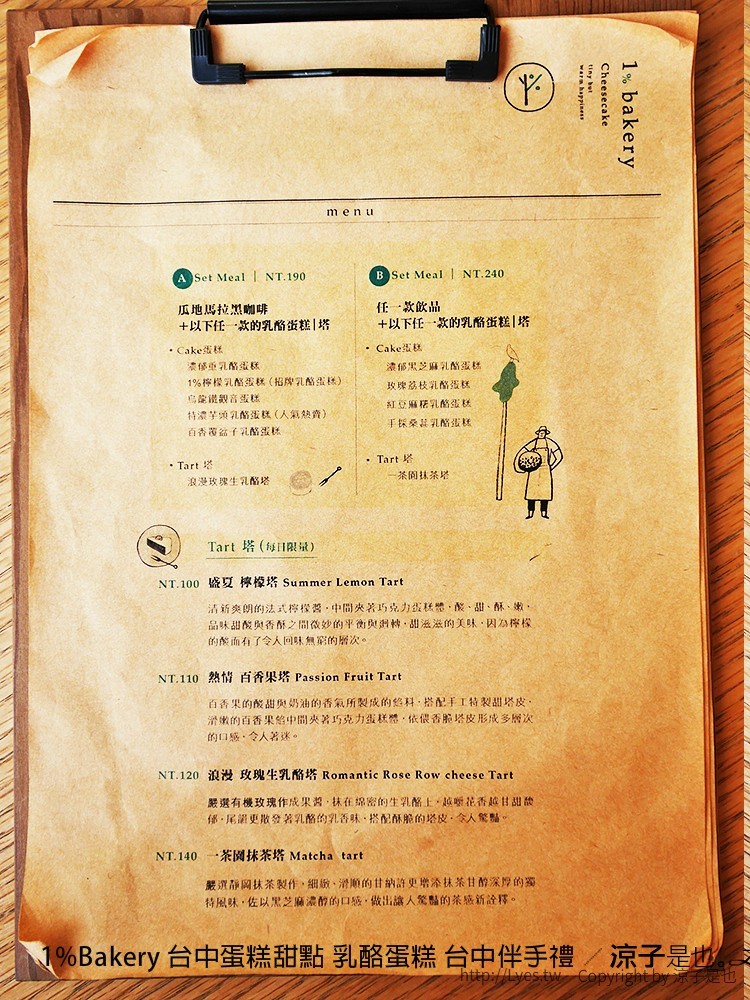 1% bakery
Cheesecake
tiny but
warm happiness
menu
A Set Meal | NT.190
瓜地馬拉黑咖啡
+以下任一款的乳酪蛋糕|塔
• Cake蛋糕
濃郁重乳酪蛋糕
1%檸檬乳酪蛋糕(招牌乳酪蛋糕)
烏龍鐵觀音蛋糕
特濃芋頭乳酪蛋糕(人氣熱賣)
百香覆盆子乳酪蛋糕
• Tart 塔
浪漫玫瑰生乳酪塔
B Set Meal | NT.240
任一款飲品
+以下任一款的乳酪蛋糕|塔
• Cake蛋糕
濃郁黑芝麻乳酪蛋糕
玫瑰荔枝乳酪蛋糕
紅豆麻糬乳酪蛋糕
手採桑葚乳酪蛋糕
• Tart 塔
一茶園抹茶塔
Tart 塔(每日限量)
NT.100 盛夏 檸檬塔 Summer Lemon Tart
清新爽朗的法式檸檬醬,中間夾著巧克力蛋糕體,酸、甜、酥、嫩,
品味甜酸與香酥之間微妙的平衡與迴轉,甜滋滋的美味,因為檸檬
的酸而有了令人回味無窮的層次。
NT.110 熱情 百香果塔 Passion Fruit Tart
百香果的酸甜與奶油的香氣所製成的餡料,搭配手工特製甜塔皮,
滑嫩的百香果餡中間夾著巧克力蛋糕體,依偎香脆塔皮形成多層次
的口感,令人著迷。
NT.120 浪漫 玫瑰生乳酪塔 Romantic Rose Row cheese Tart
嚴選有機玫瑰作成果醬,抹在綿密的生乳酪上,越嚼花香越甘甜馥
郁,尾韻更散發著乳酪的乳香味,搭配酥脆的塔皮,令人驚豔。
NT.140 一茶園抹茶塔 Matcha tart
嚴選靜岡抹茶製作,細緻、滑順的甘納許更增添抹茶甘醇深厚的獨
特風味,佐以黑芝麻濃醇的口感,做出讓人驚豔的茶感新詮釋。
1%Bakery 台中蛋糕甜點 乳酪蛋糕 台中伴手禮 / 涼子是也。
http://Lyes.tw Copyright by 涼子是也